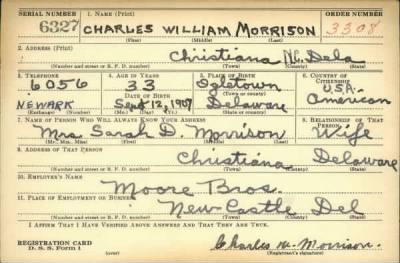 SERIAL NUMBER 1. NAME (Print) ORDER NUMBER
6327 CHARLES WILLIAM MORRISON 3308
(First) (Middle) (Last)
2. ADDRESS (Print)
Christiana N.C. Dela
(Number and street or R. F. D. number) (Town) (County) (State)
3. TELEPHONE 4. AGE IN YEARS 5. PLACE OF BIRTH 6. COUNTRY OF CITIZENSHIP
6056 33 Ogletown U.S.A.
DATE OF BIRTH (Town or county)
NEWARK Sept 12, 1907 Delaware American
(Exchange) (Number) (Mo.) (Day) (Yr.) (State or country)
7. NAME OF PERSON WHO WILL ALWAYS KNOW YOUR ADDRESS 8. RELATIONSHIP OF THAT PERSON
Mrs. Sarah D. Morrison Wife
(Mr., Mrs., Miss) (First) (Middle) (Last)
9. ADDRESS OF THAT PERSON
Christiana Delaware
(Number and street or R. F. D. number) (Town) (County) (State)
10. EMPLOYER'S NAME
Moore Bros.
11. PLACE OF EMPLOYMENT OR BUSINESS
New Castle Del
(Number and street or R. F. D. number) (Town) (County) (State)
I AFFIRM THAT I HAVE VERIFIED ABOVE ANSWERS AND THAT THEY ARE TRUE.
REGISTRATION CARD
D. S. S. Form 1 (over) Charles W. Morrison.
(Registrant's signature)